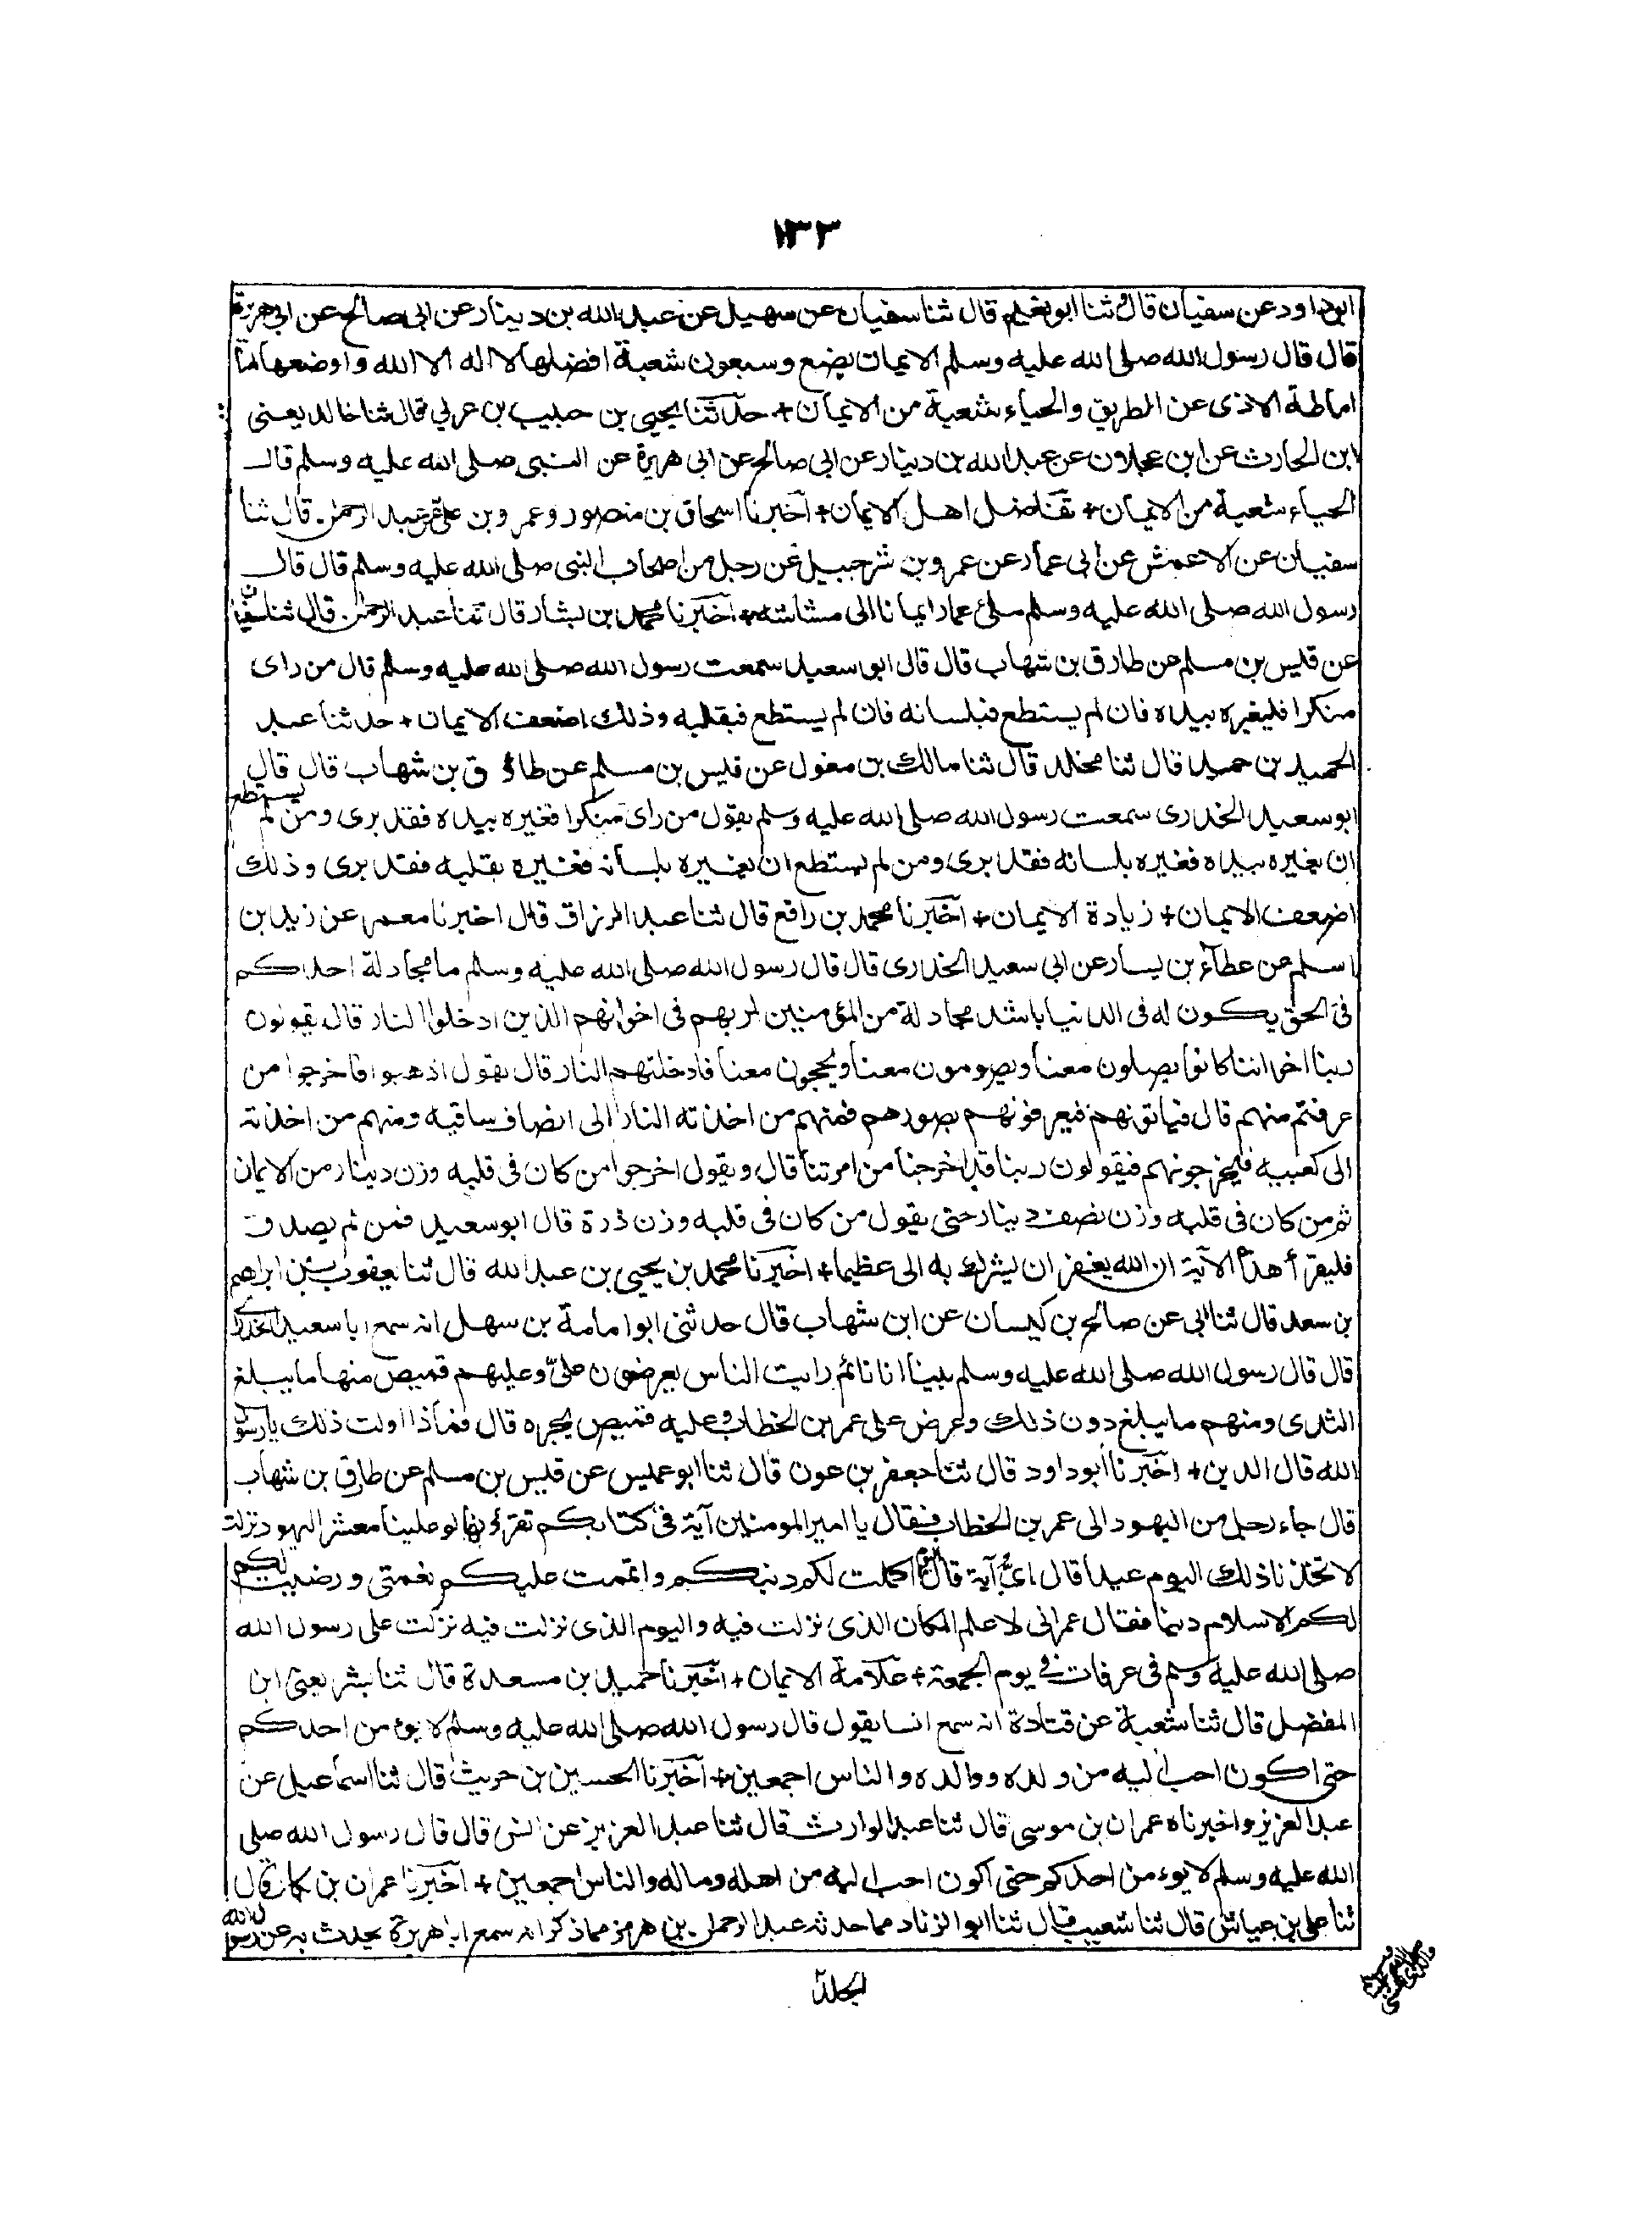 ١٣٣
ابوداود عن سفيان قال و ثنا ابو نعيم قال ثنا سفيان عن سهيل عن عبد الله بن دينار عن ابى صالح عن ابى هريرة
قال قال رسول الله صلى الله عليه وسلم الايمان بضع وسبعون شعبة افضلها لا اله الا الله واوضعها
اماطة الاذى عن الطريق والحياء شعبة من الايمان + حدثنا يحيى بن حبيب بن عربي قال ثنا خالد يعنى
ابن الحارث عن ابن عجلان عن عبد الله بن دينار عن ابى صالح عن ابى هريرة عن النبى صلى الله عليه وسلم قال
الحياء شعبة من الايمان + تفاضل اهل الايمان + اخبرنا اسحاق بن منصور وعمرو بن على عن عبد الرحمن قال ثنا
سفيان عن الاعمش عن ابى عمار عن عمرو بن شرحبيل عن رجل من اصحاب النبى صلى الله عليه وسلم قال قال
رسول الله صلى الله عليه وسلم ملئ عمار ايمانا الى مشاشه + اخبرنا محمد بن بشار قال ثنا عبد الرحمن قال ثنا سفيان
عن قيس بن مسلم عن طارق بن شهاب قال قال ابو سعيد سمعت رسول الله صلى الله عليه وسلم قال من راى
منكرا فليغيره بيده فان لم يستطع فبلسانه فان لم يستطع فبقلبه وذلك اضعف الايمان + حدثنا عبد
الحميد بن حميد قال ثنا مخلد قال ثنا مالك بن مغول عن قيس بن مسلم عن طارق بن شهاب قال قال
ابو سعيد الخدرى سمعت رسول الله صلى الله عليه وسلم يقول من راى منكرا فغيره بيده فقد برى ومن لم يستطع
ان يغيره بيده فغيره بلسانه فقد برى ومن لم يستطع ان يغيره بلسانه فغيره بقلبه فقد برى وذلك
اضعف الايمان + زيادة الايمان + اخبرنا محمد بن رافع قال ثنا عبد الرزاق قال اخبرنا معمر عن زيد بن
اسلم عن عطاء بن يسار عن ابى سعيد الخدرى قال قال رسول الله صلى الله عليه وسلم ما مجادلة احدكم
فى الحق يكون له فى الدنيا باشد مجادلة من المؤمنين لربهم فى اخوانهم الذين ادخلوا النار قال يقولون
ربنا اخواننا كانوا يصلون معنا ويصومون معنا ويحجون معنا فادخلتهم النار قال يقول اذهبوا فاخرجوا من
عرفتم منهم قال فياتونهم فيعرفونهم بصورهم فمنهم من اخذته النار الى انصاف ساقيه ومنهم من اخذته
الى كعبيه فيخرجونهم فيقولون ربنا قد اخرجنا من امرتنا قال ويقول اخرجوا من كان فى قلبه وزن دينار من الايمان
ثم من كان فى قلبه وزن نصف دينار حتى يقول من كان فى قلبه وزن ذرة قال ابو سعيد فمن لم يصدق
فليقرأ هذه الآية ان الله يغفر ان يشرك به الى عظيما + اخبرنا محمد بن يحيى بن عبد الله قال ثنا يعقوب بن ابراهيم
بن سعد قال ثنا ابى عن صالح بن كيسان عن ابن شهاب قال حدثنى ابوامامة بن سهل انه سمع ابا سعيد الخدرى
قال قال رسول الله صلى الله عليه وسلم بينا انا نائم رايت الناس يعرضون علىّ وعليهم قميص منها ما يبلغ
الثدى ومنهم ما يبلغ دون ذلك وعرض على عمر بن الخطاب وعليه قميص يجره قال فماذا اولت ذلك يا رسول
الله قال الدين + اخبرنا ابوداود قال ثنا جعفر بن عون قال ثنا ابو عميس عن قيس بن مسلم عن طارق بن شهاب
قال جاء رجل من اليهود الى عمر بن الخطاب فقال يا امير المومنين آية فى كتابكم تقرؤنها لو علينا معشر اليهود نزلت
لاتخذنا ذلك اليوم عيدا قال اىّ آية قال اليوم اكملت لكم دينكم واتممت عليكم نعمتى ورضيت لكم
لكم الاسلام دينا فقال عمر انى لاعلم المكان الذى نزلت فيه واليوم الذى نزلت فيه نزلت على رسول الله
صلى الله عليه وسلم فى عرفات فى يوم الجمعة + علامة الايمان + اخبرنا حميد بن مسعدة قال ثنا بشر يعنى ابن
المفضل قال ثنا شعبة عن قتادة انه سمع انسا يقول قال رسول الله صلى الله عليه وسلم لا يومن احدكم
حتى اكون احب اليه من ولده ووالده والناس اجمعين + اخبرنا الحسين بن حريث قال ثنا اسماعيل عن
عبد العزيز واخبرناه عمران بن موسى قال ثنا عبد الوارث قال ثنا عبد العزيز عن انس قال قال رسول الله صلى
الله عليه وسلم لا يومن احدكم حتى اكون احب اليه من اهله وماله والناس اجمعين + اخبرنا عمران بن بكار قال
ثنا على بن عياش قال ثنا شعيب قال ثنا ابو الزناد مما حدثه عبد الرحمن بن هرمز مما ذكر انه سمع ابا هريرة يحدث به عن رسول الله